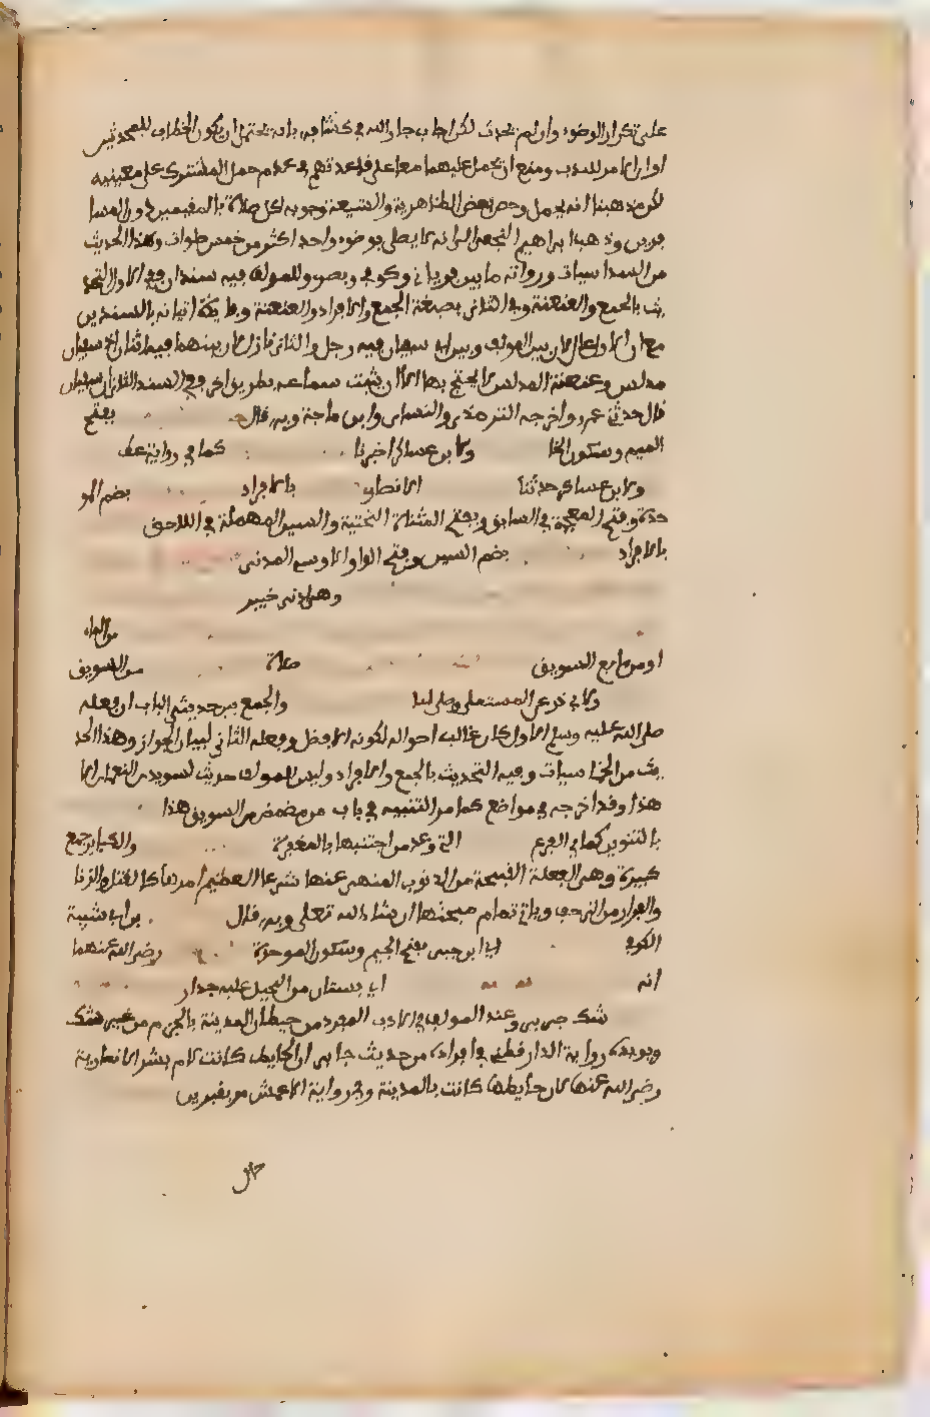 على تكرار الوضوء وان لم يحدث لكن اجاب جار الله في كشافه بانه يحتمل ان يكون الخطاب للمحدثين
او ان الامر للندب ومنع ان يحمل عليهما معا على قاعدتهم في عدم حمل المشترك على معنييه
لكن مذهبنا انه يحمل وخص بعض الظاهرية والشيعة وجوبه لكل صلاة بالمقيمين دون المسا
فرين وذهب ابراهيم النخعي الى انه لا يصلى بوضوء واحد اكثر من خمس صلوات وهذا الحديث
من السداسيات ورواته ما بين فريابي وكوفي وبصري وللمؤلف فيه سندان ففي الاول التحد
يث بالجمع والعنعنة وفي الثاني بصيغة الجمع والافراد والعنعنة وفايدة اتيانه بالسندين
مع ان الاول عال لان بين المؤلف وبين سفيان فيه رجل والثاني نازل لان بينهما فيه اثنان ان سفيان
مدلس وعنعنة المدلس لا يحتج بها الا ان يثبت سماعه بطريق اخر ففي السند الثاني ان سفيان
قال حدثني عمرو واخرجه الترمذي والنسائي وابن ماجة وبه قال بفتح
الميم وسكون الخا ولابن عساكر اخبرنا كما في رواية عط
ولابن عساكر حدثنا الانصاري بالافراد بضم المو
حدة وفتح المعجمة في السابق وبفتح المثناة التحتية والسين المهملة في اللاحق
بالافراد بضم السين وفتح الواو الاوسي المدني
وهي ادنى خيبر
من الماء
او من مايع السويق صلاة من السويق
ولابي ذر عن المستملي وصلى لنا والجمع بين حديثي الباب ان فعله
صلى الله عليه وسلم الاول كان غالب احواله لكونه الافضل وفعله الثاني لبيان الجواز وهذا الحد
يث من الخماسيات وفيه التحديث بالجمع والافراد وليس للمؤلف حديث لسويد بن النعمان الا
هذا وقد اخرجه في مواضع كما مر التنبيه في باب من مضمض من السويق هذا
بالتنوين كما في الفرع التي وعد من اجتنبها بالمغفرة والكباير جمع
كبيرة وهي الفعلة القبيحة من الذنوب المنهي عنها شرعا العظيم امرها كالقتل والزنا
والفرار من الزحف وياتي تمام مبحثها ان شاء الله تعلى وبه قال بن ابي شيبة
الكوفي اي ابن جبر بفتح الجيم وسكون الموحدة رضي الله عنهما
انه اي بستان من النخيل عليه جدار
شك جرير وعند المؤلف في الادب المفرد من حيطان المدينة بالجزم من غير شك
ويويده رواية الدارقطني في افراده من حديث جابر ان الحايط كانت لام مبشر الانصارية
رضي الله عنها لان حايطها كانت بالمدينة وفي رواية الاعمش مر بقبرين